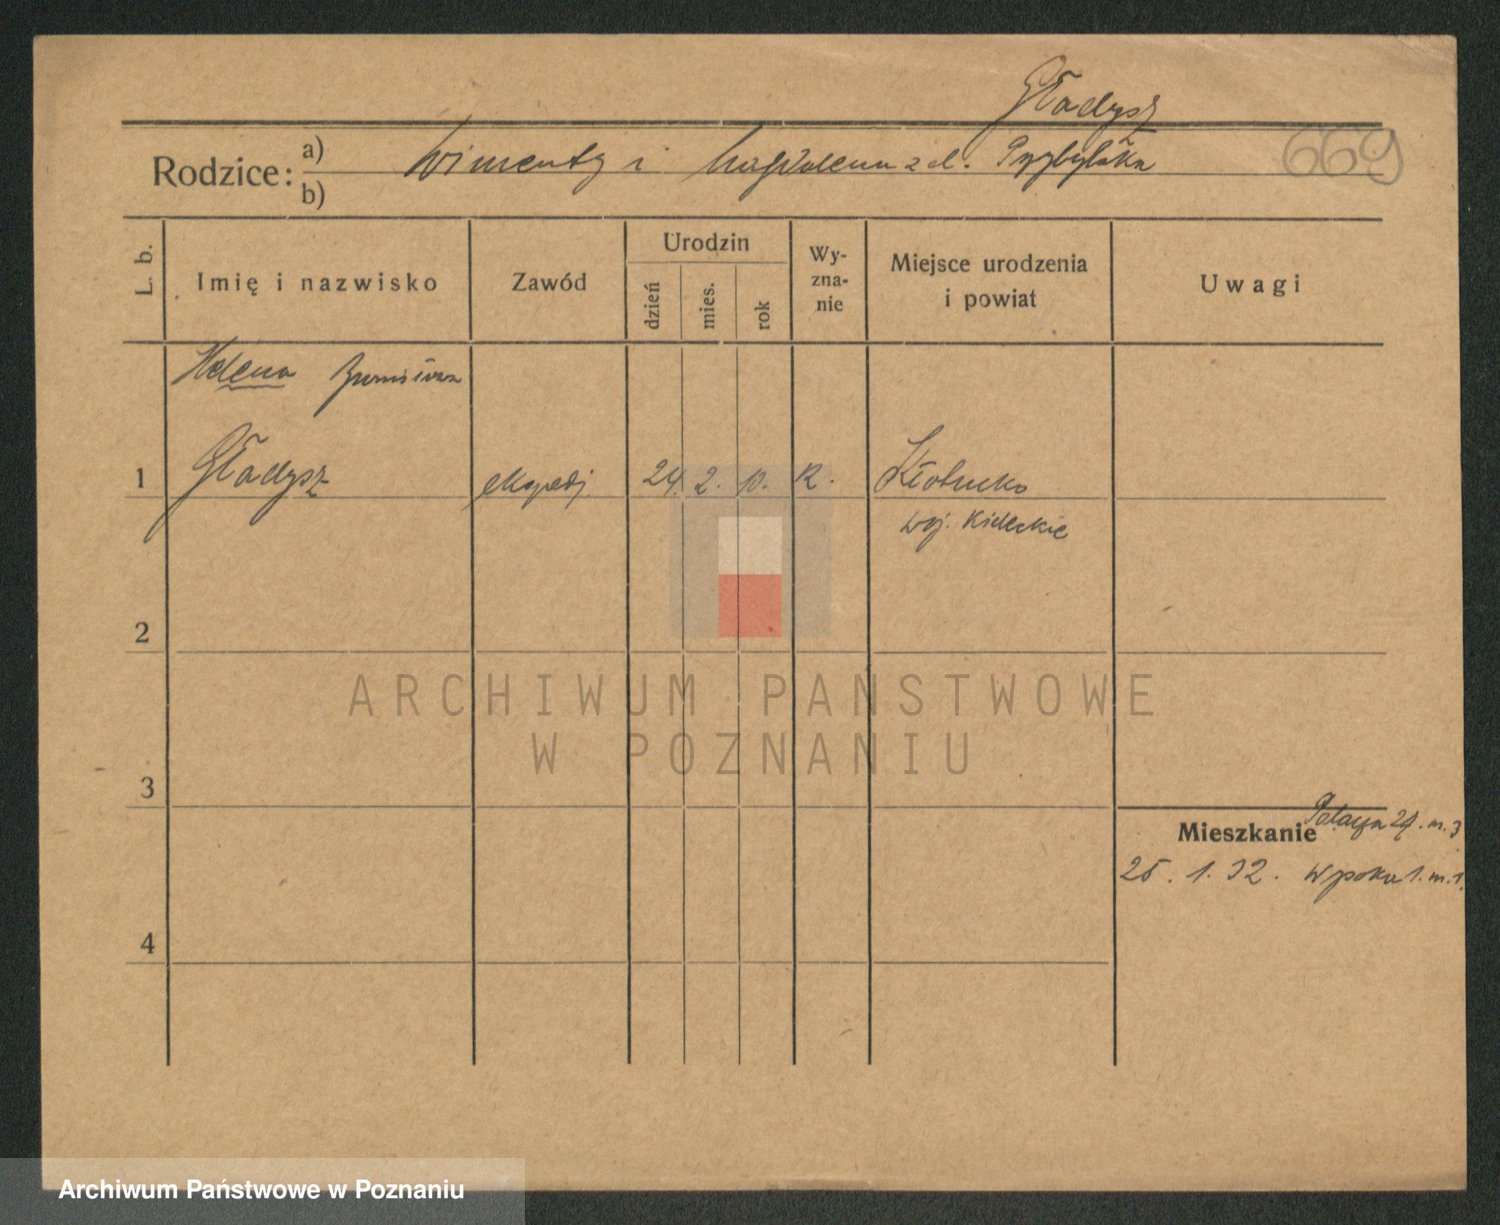 Gładysz
669
Rodzice: a) Wincenty i Magdalena z d. Przybylska
b)
L. b.
Imię i nazwisko
Zawód
Urodzin
dzień
mies.
rok
Wy-
zna-
nie
Miejsce urodzenia
i powiat
Uwagi
Helena
1 Gładysz ekspedj. 24. 2. 10. R. Kłobucko
woj. Kieleckie
2
3
4
Mieszkanie 24. m. 3
25. 1. 32. 1. m. 1.
ARCHIWUM PAŃSTWOWE
W POZNANIU
Archiwum Państwowe w Poznaniu